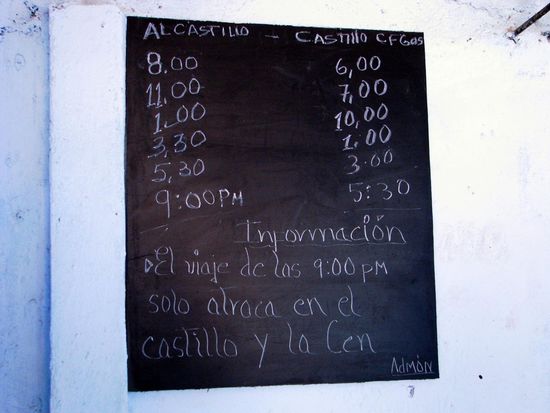 AL CASTILLO - CASTILLO CFGOS
8.00 6,00
11,00 7,00
1.00 10,00
3,30 1.00
5,30 3.00
9:00 PM 5:30
Información
El viaje de las 9:00 pm
solo atraca en el
castillo y la Cen
Admón